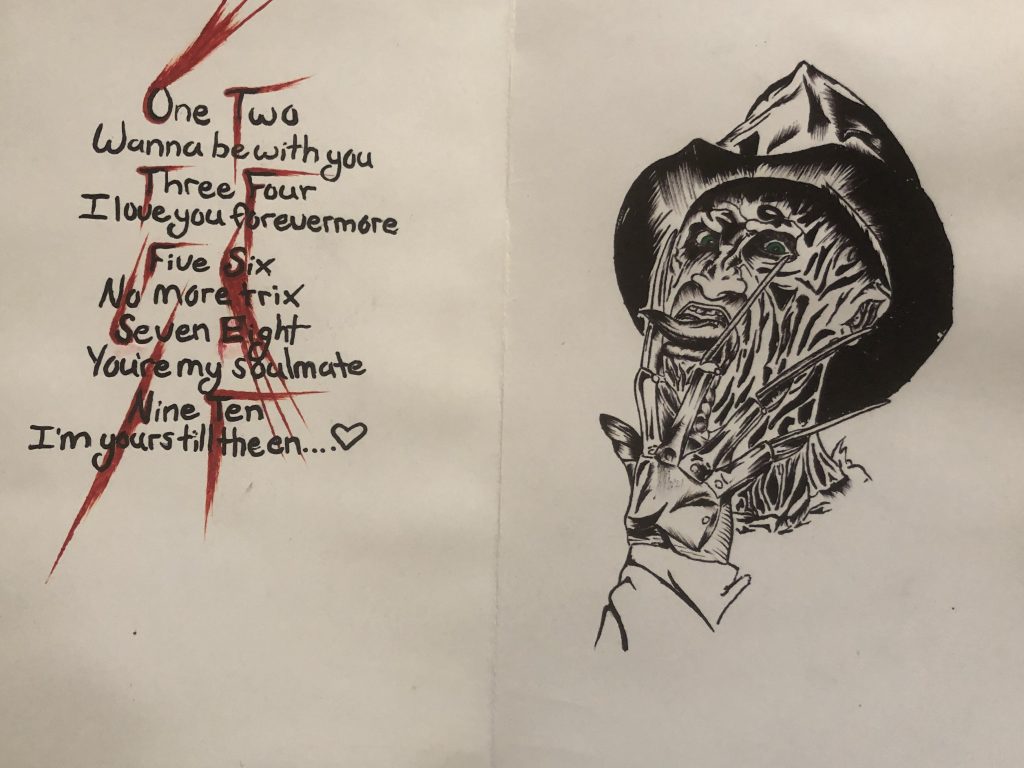 One Two
Wanna be with you
Three Four
I love you forevermore
Five Six
No more trix
Seven Eight
You're my soulmate
Nine Ten
I'm yours till the en....♡